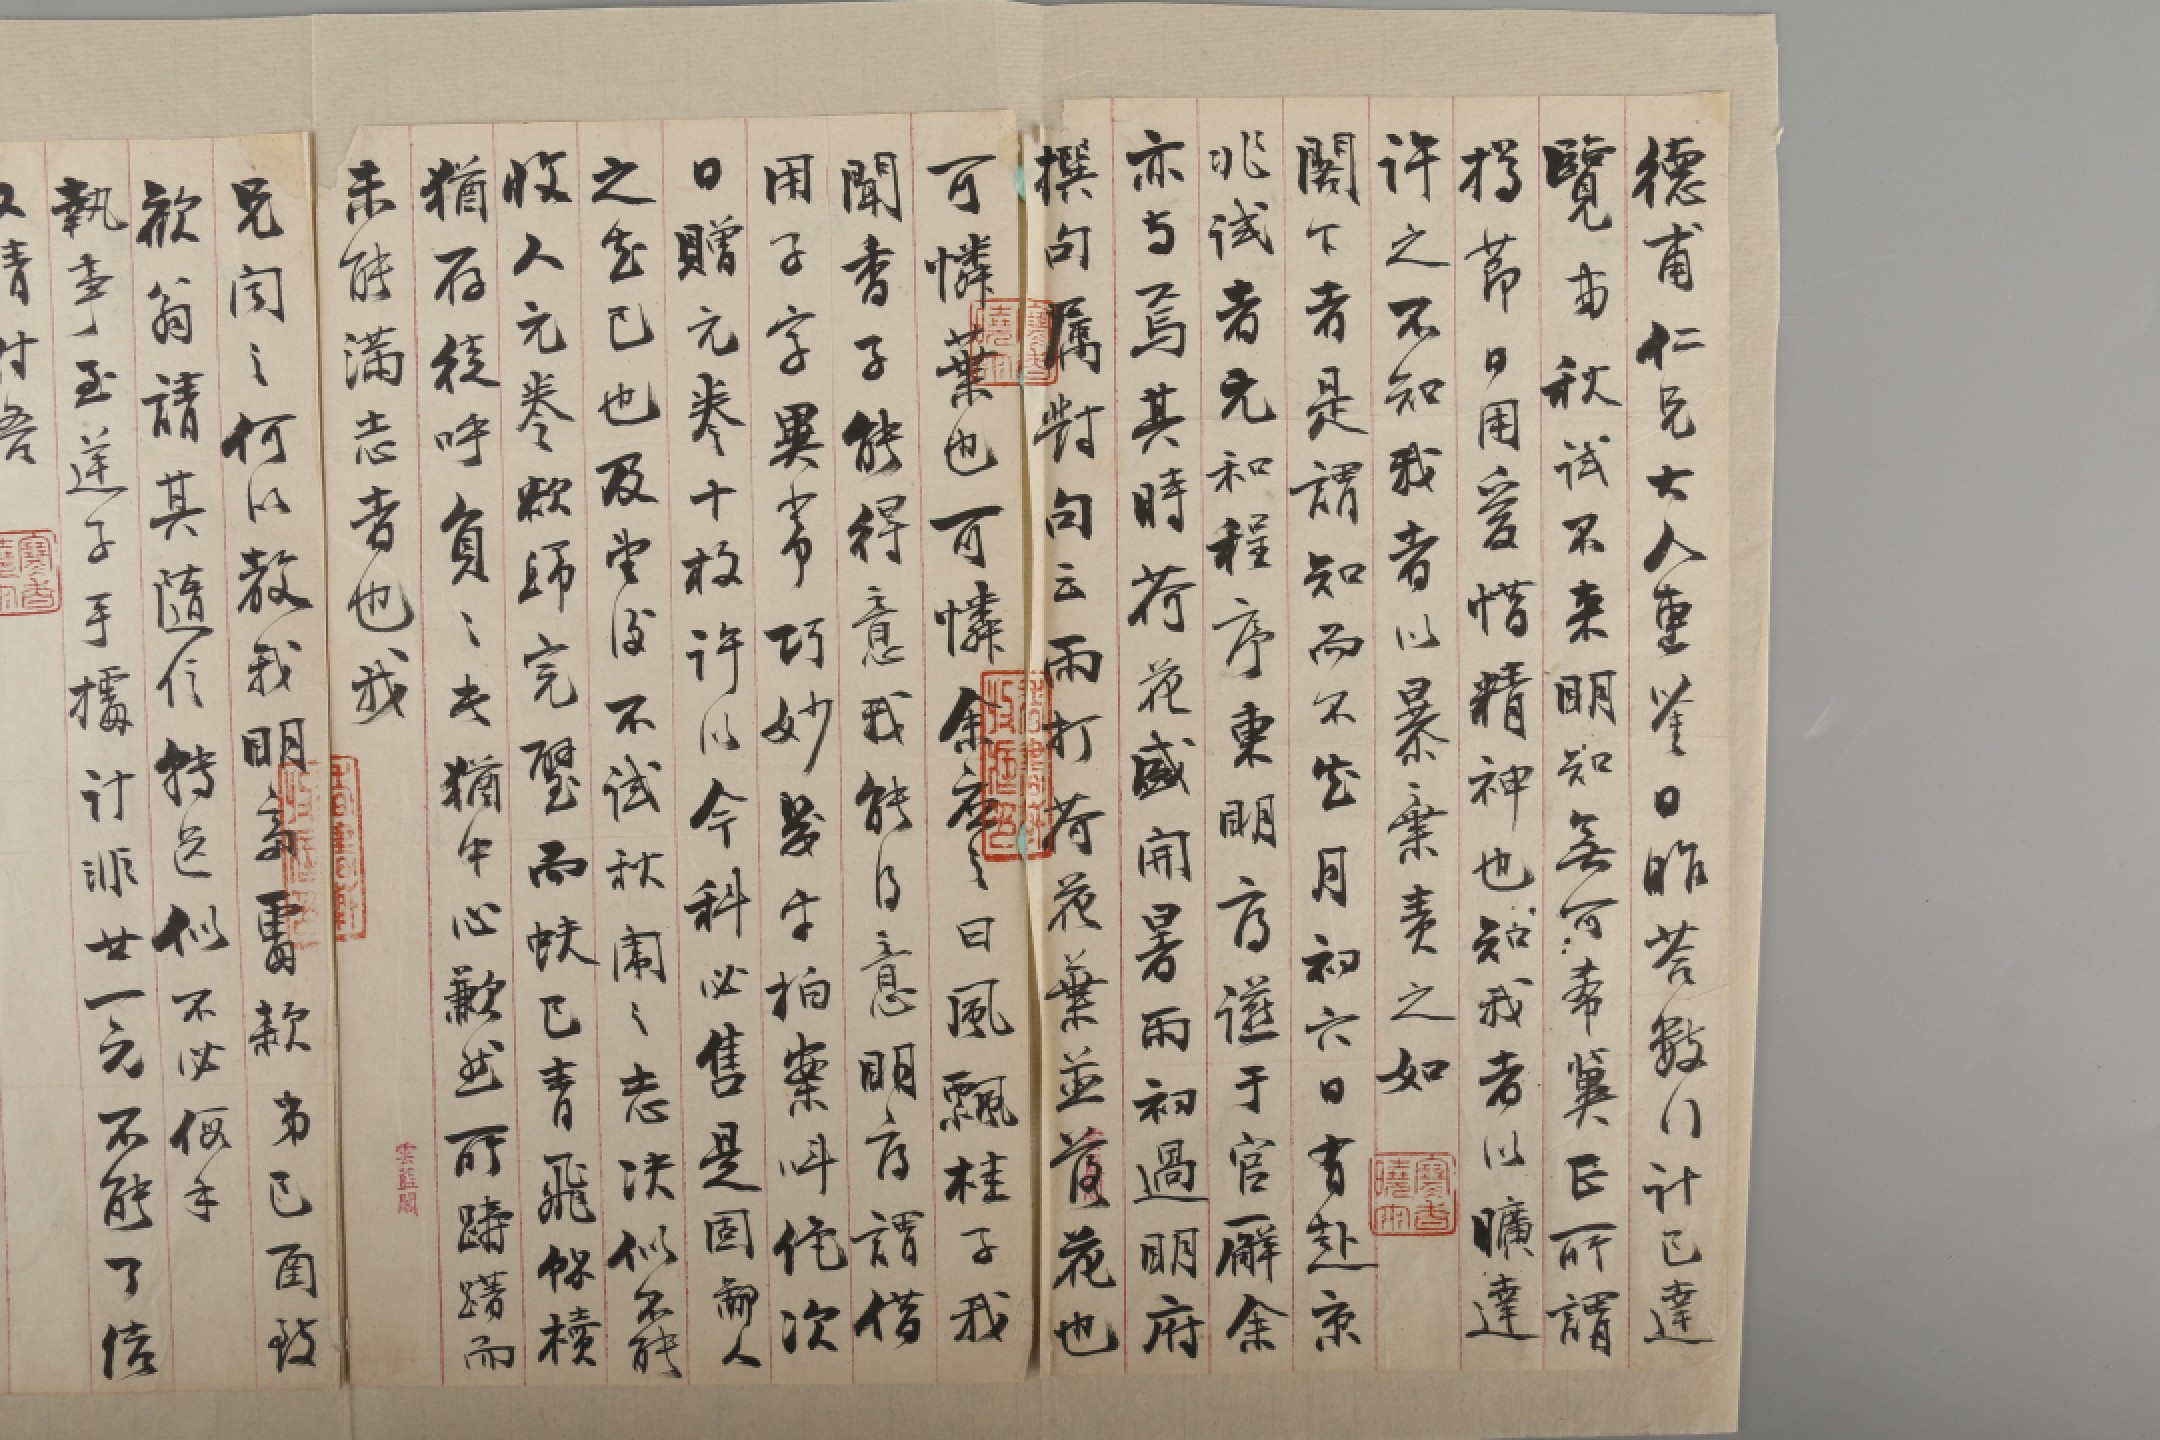 德甫仁兄大人惠鑒日昨荅數行計已達
覽弟秋試不來明知無可希冀正所謂
撙節日用愛惜精神也知我者以曠達
許之不知我者以暴棄責之如
閣下者是謂知而不知月初六日有赴京
兆試者尤和程序東明府讌于官廨余
亦与焉其時荷花盛開暑雨初過明府
撰句属對句云雨打荷花葉並荷花也
可憐葉也可憐余應之曰風飄桂子我
聞香子能得意我能得意明府謂借
用子字異常巧妙是日拍案叫佗次
日贈元卷十枚許以今科必售是固知人
之知己也及望後不試秋闈之志決似不能
收人元卷欲歸完璧而蚨已青飛解櫝
猶存徒呼負負夫猶中心歉然所躊躇而
未能滿志者也我
兄聞之何以教我明府處款弟已函致
歙翁請其隨信轉送似不必假手
執事至蓮子手攜計非廿一元不能了結
又請付吾
雲藍閣